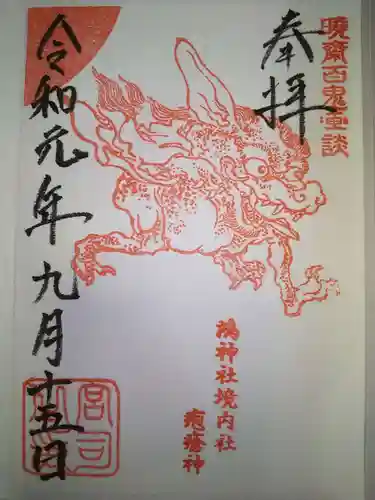 暁斎百鬼画談
奉拝
鴻神社境内社
疱瘡神
令和元年九月十五日